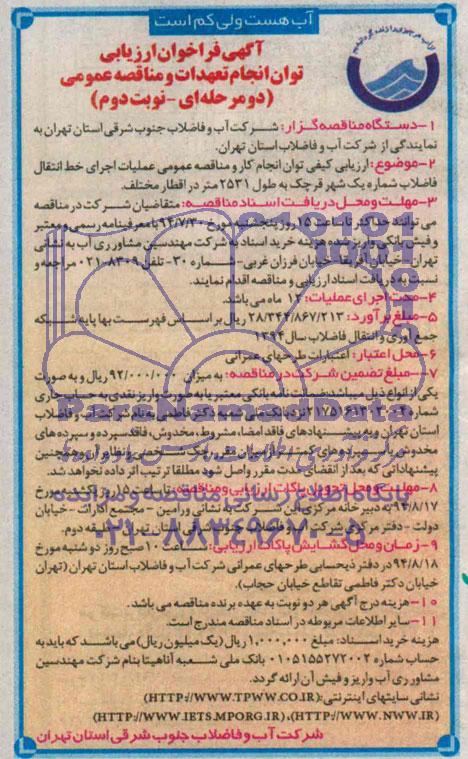 آب هست ولی کم است
آگهی فراخوان ارزیابی
توان انجام تعهدات و مناقصه عمومی
(دو مرحله‌ای - نوبت دوم)
۱- دستگاه مناقصه‌گزار: شرکت آب و فاضلاب جنوب شرقی استان تهران به
نمایندگی از شرکت آب و فاضلاب استان تهران.
۲- موضوع: ارزیابی کیفی توان انجام کار و مناقصه عمومی عملیات اجرای خط انتقال
فاضلاب شماره یک شهر قرچک به طول ۲۵۳۱ متر در اقطار مختلف.
۳- مهلت و محل دریافت اسناد مناقصه: متقاضیان شرکت در مناقصه
می‌توانند حداکثر تا ساعت ۱۵ روز پنجشنبه مورخ ۹۴/۷/۳۰ با معرفینامه رسمی و معتبر
و فیش بانکی واریز شده هزینه خرید اسناد به شرکت مهندسین مشاور ری آب به نشانی
تهران - خیابان آفریقا - خیابان فرزان غربی - شماره ۳۰ - تلفن ۸۳۰۹-۰۲۱ مراجعه و
نسبت به دریافت اسناد ارزیابی و مناقصه اقدام نمایند.
۴- مدت اجرای عملیات: ۱۲ ماه می‌باشد.
۵- مبلغ برآورد: ۲۸/۳۴۲/۸۶۷/۲۱۳ ریال بر اساس فهرست بها پایه شبکه
جمع آوری و انتقال فاضلاب سال ۱۳۹۴
۶- محل اعتبار: اعتبارات طرحهای عمرانی
۷- مبلغ تضمین شرکت در مناقصه: به میزان ۹۲/۰۰۰/۰۰۰ ریال و به صورت
یکی از انواع ذیل میباشد: ضمانت نامه بانکی معتبر یا به صورت واریز نقدی به حساب جاری
شماره نزد بانک ملی شعبه دکتر فاطمی به نام شرکت آب و فاضلاب
استان تهران و به پیشنهادهای فاقد امضاء، مشروط، مخدوش، فاقد سپرده و سپرده‌های
مخدوش یا سپرده‌های کمتر از میزان مقرر، چک شخصی و نظایر آن و همچنین
پیشنهاداتی که بعد از انقضای مدت مقرر واصل شود مطلقا ترتیب اثر داده نخواهد شد.
۸- مهلت و محل تحویل پاکات ارزیابی و مناقصه: تا ساعت ۱۵ روز یکشنبه مورخ
۹۴/۸/۱۷ به دبیرخانه مرکزی این شرکت به نشانی ورامین - مجتمع ادارات - خیابان
دولت - دفتر مرکزی شرکت آب و فاضلاب جنوب شرقی استان تهران - طبقه دوم.
۹- زمان و محل گشایش پاکات ارزیابی: ساعت ۱۰ صبح روز دوشنبه مورخ
۹۴/۸/۱۸ در دفتر ذیحسابی طرحهای عمرانی شرکت آب و فاضلاب استان تهران (تهران
خیابان دکتر فاطمی تقاطع خیابان حجاب).
۱۰- هزینه درج آگهی هر دو نوبت به عهده برنده مناقصه می باشد.
۱۱- سایر اطلاعات مربوطه در اسناد مناقصه مندرج است.
هزینه خرید اسناد: مبلغ ۱,۰۰۰,۰۰۰ ریال (یک میلیون ریال) می باشد که باید به
حساب شماره ۰۱۰۵۱۵۵۲۷۲۰۰۲ بانک ملی شعبه آناهیتا بنام شرکت مهندسین
مشاور ری آب واریز و فیش آن ارائه گردد.
نشانی سایتهای اینترنتی: (HTTP://WWW.TPWW.CO.IR)
(HTTP://WWW.NWW.IR)، (HTTP://WWW.IETS.MPORG.IR)
شرکت آب و فاضلاب جنوب شرقی استان تهران
پایگاه اطلاع رسانی مناقصه و مزایده
۰۲۱-۸۸۳۴۹۶۷۰-۵